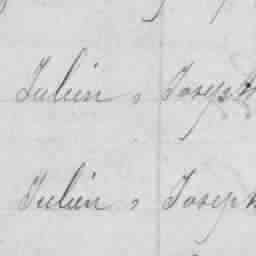 Julien, Joseph
Julien, Joseph